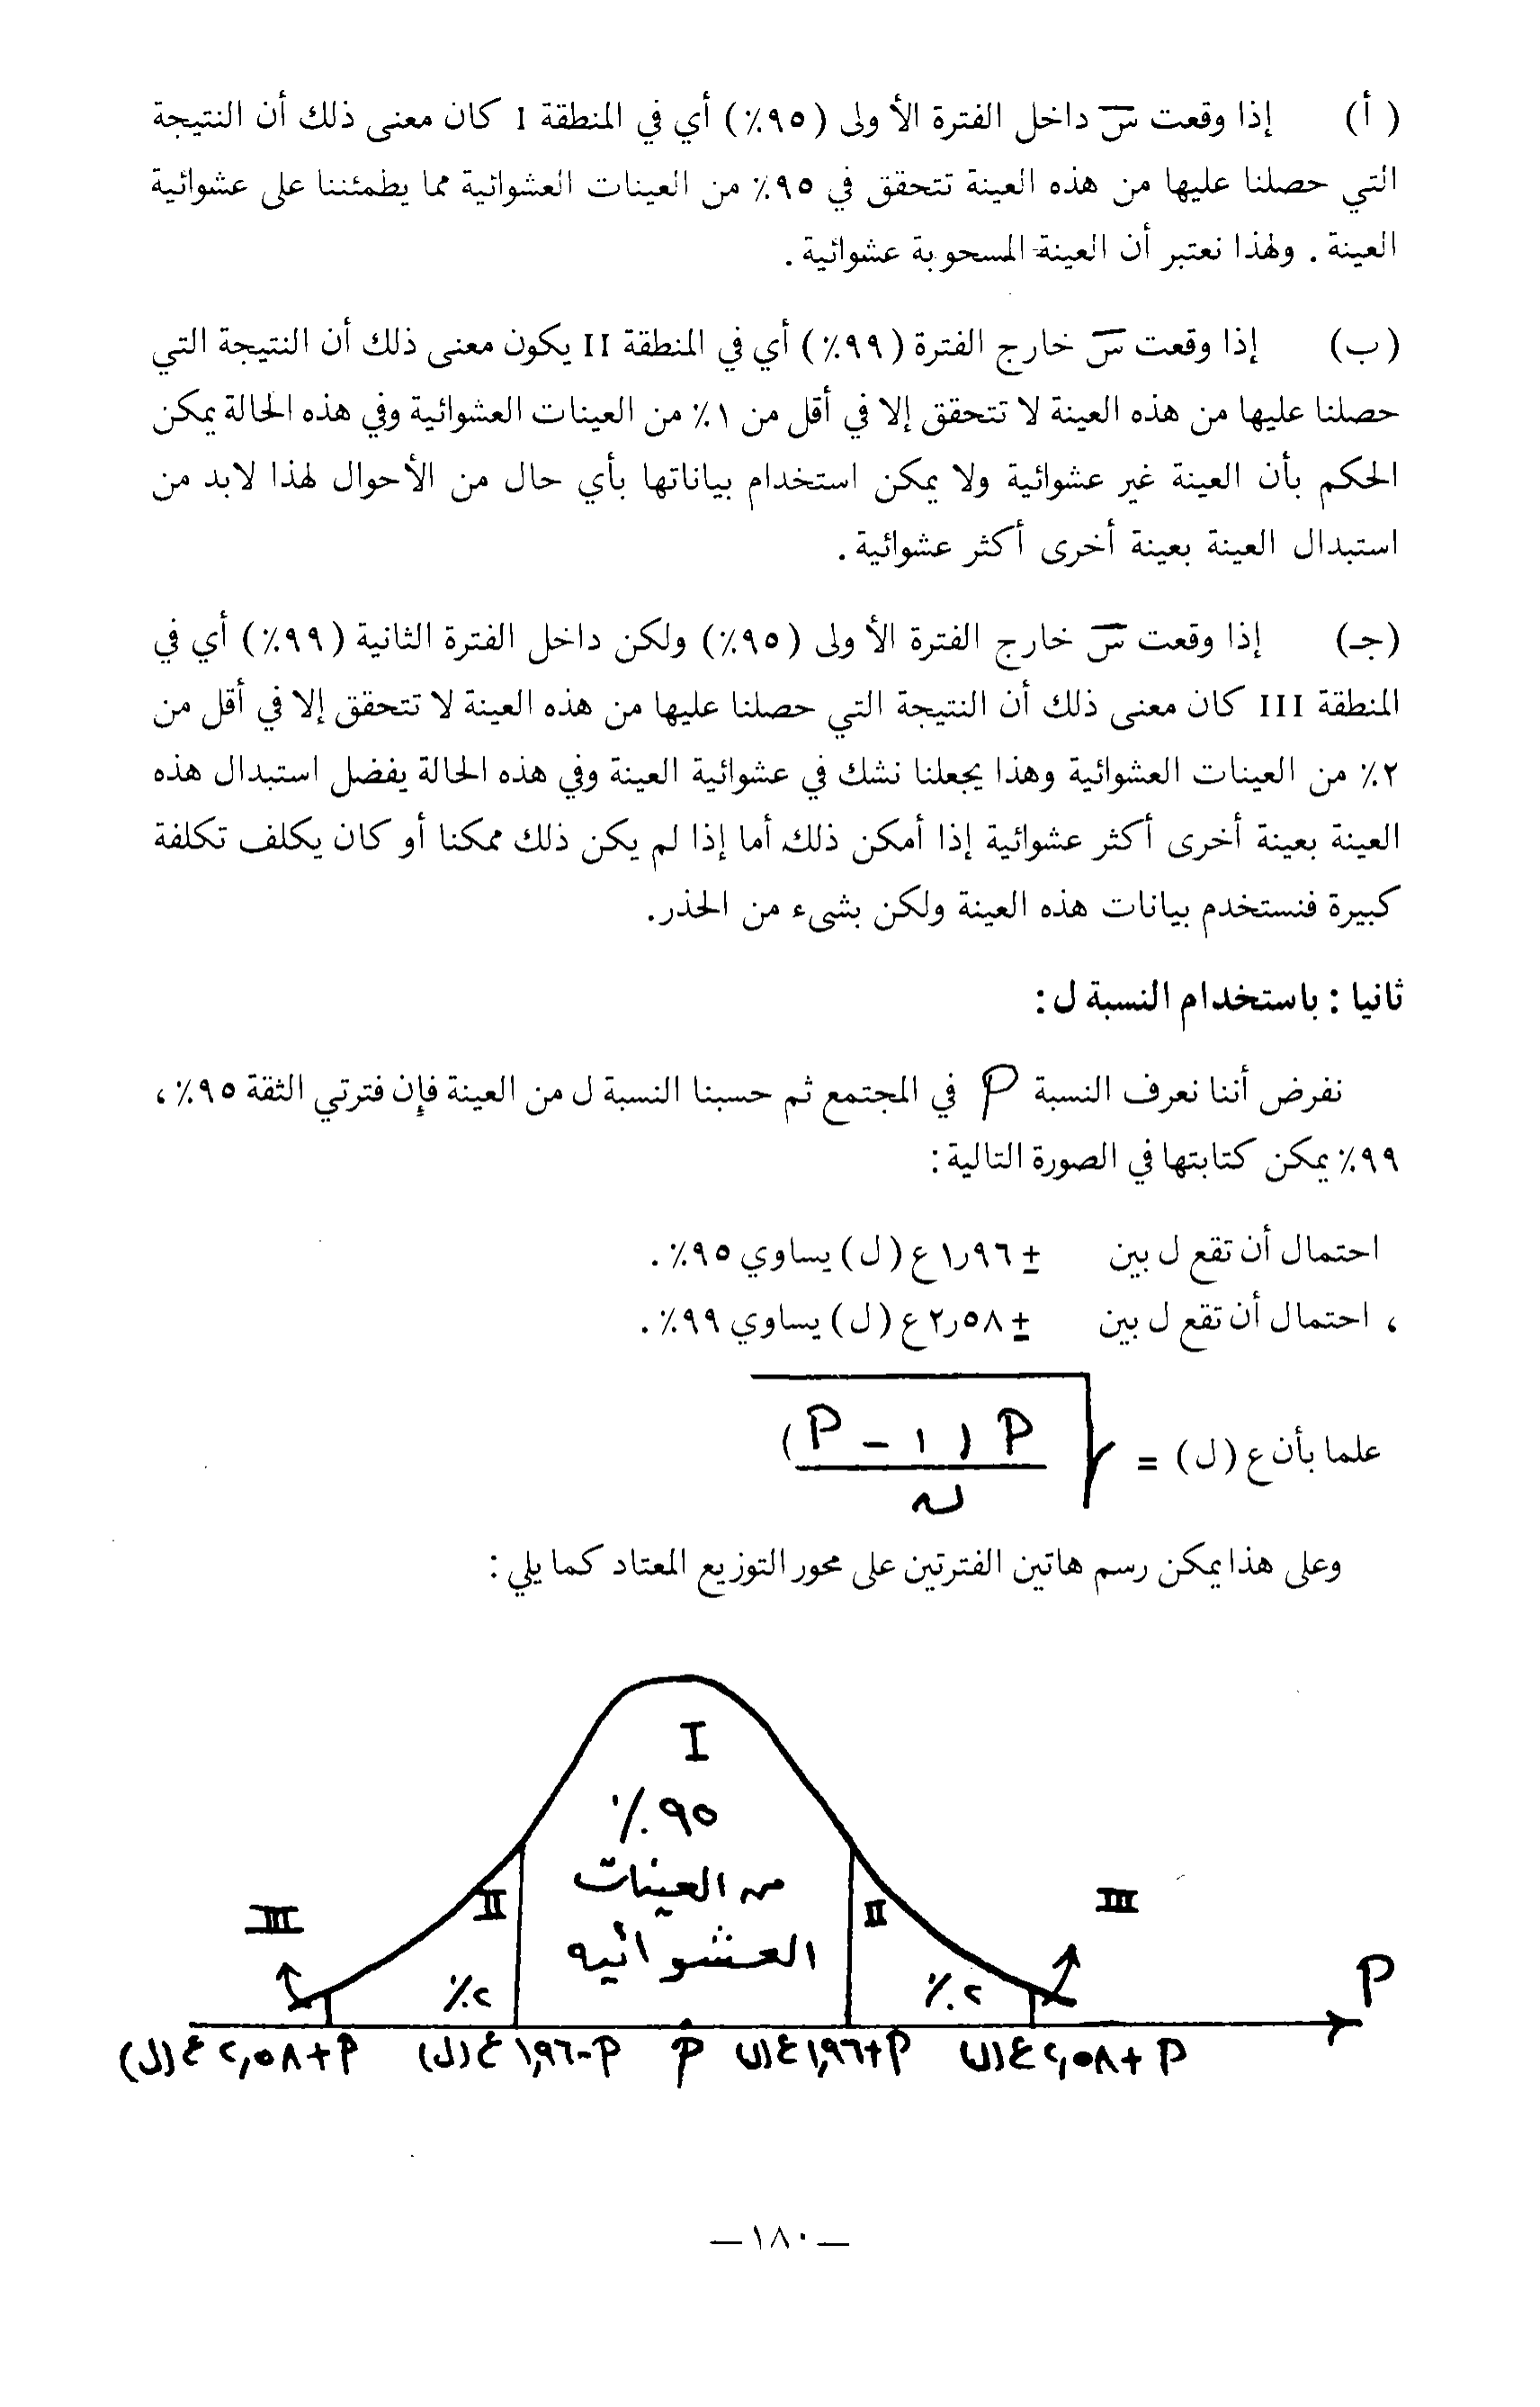 (أ) إذا وقعت س̄ داخل الفترة الأولى (٩٥٪) أي في المنطقة I كان معنى ذلك أن النتيجة
التي حصلنا عليها من هذه العينة تتحقق في ٩٥٪ من العينات العشوائية مما يطمئننا على عشوائية
العينة . ولهذا نعتبر أن العينة المسحوبة عشوائية .
(ب) إذا وقعت س̄ خارج الفترة (٩٩٪) أي في المنطقة II يكون معنى ذلك أن النتيجة التي
حصلنا عليها من هذه العينة لا تتحقق إلا في أقل من ١٪ من العينات العشوائية وفي هذه الحالة يمكن
الحكم بأن العينة غير عشوائية ولا يمكن استخدام بياناتها بأي حال من الأحوال لهذا لابد من
استبدال العينة بعينة أخرى أكثر عشوائية .
(جـ) إذا وقعت س̄ خارج الفترة الأولى (٩٥٪) ولكن داخل الفترة الثانية (٩٩٪) أي في
المنطقة III كان معنى ذلك أن النتيجة التي حصلنا عليها من هذه العينة لا تتحقق إلا في أقل من
٢٪ من العينات العشوائية وهذا يجعلنا نشك في عشوائية العينة وفي هذه الحالة يفضل استبدال هذه
العينة بعينة أخرى أكثر عشوائية إذا أمكن ذلك أما إذا لم يكن ذلك ممكنا أو كان يكلف تكلفة
كبيرة فنستخدم بيانات هذه العينة ولكن بشىء من الحذر.
ثانيا : باستخدام النسبة ل:
نفرض أننا نعرف النسبة P في المجتمع ثم حسبنا النسبة ل من العينة فإن فترتي الثقة ٩٥٪ ،
٩٩٪ يمكن كتابتها في الصورة التالية :
احتمال أن تقع ل بين ± ١٫٩٦ ع (ل) يساوي ٩٥٪ .
، احتمال أن تقع ل بين ± ٢٫٥٨ ع (ل) يساوي ٩٩٪ .
علما بأن ع (ل) = √ P (١ – P)
ن
وعلى هذا يمكن رسم هاتين الفترتين على محور التوزيع المعتاد كما يلي :
I
٩٥٪
من العينات
العشوائيه
III II II III
٢٪ ٢٪
P
P+٢,٥٨ ع (ل) P-١,٩٦ ع (ل) P P+١,٩٦ ع (ل) P+٢,٥٨ ع (ل)
— ١٨٠ —